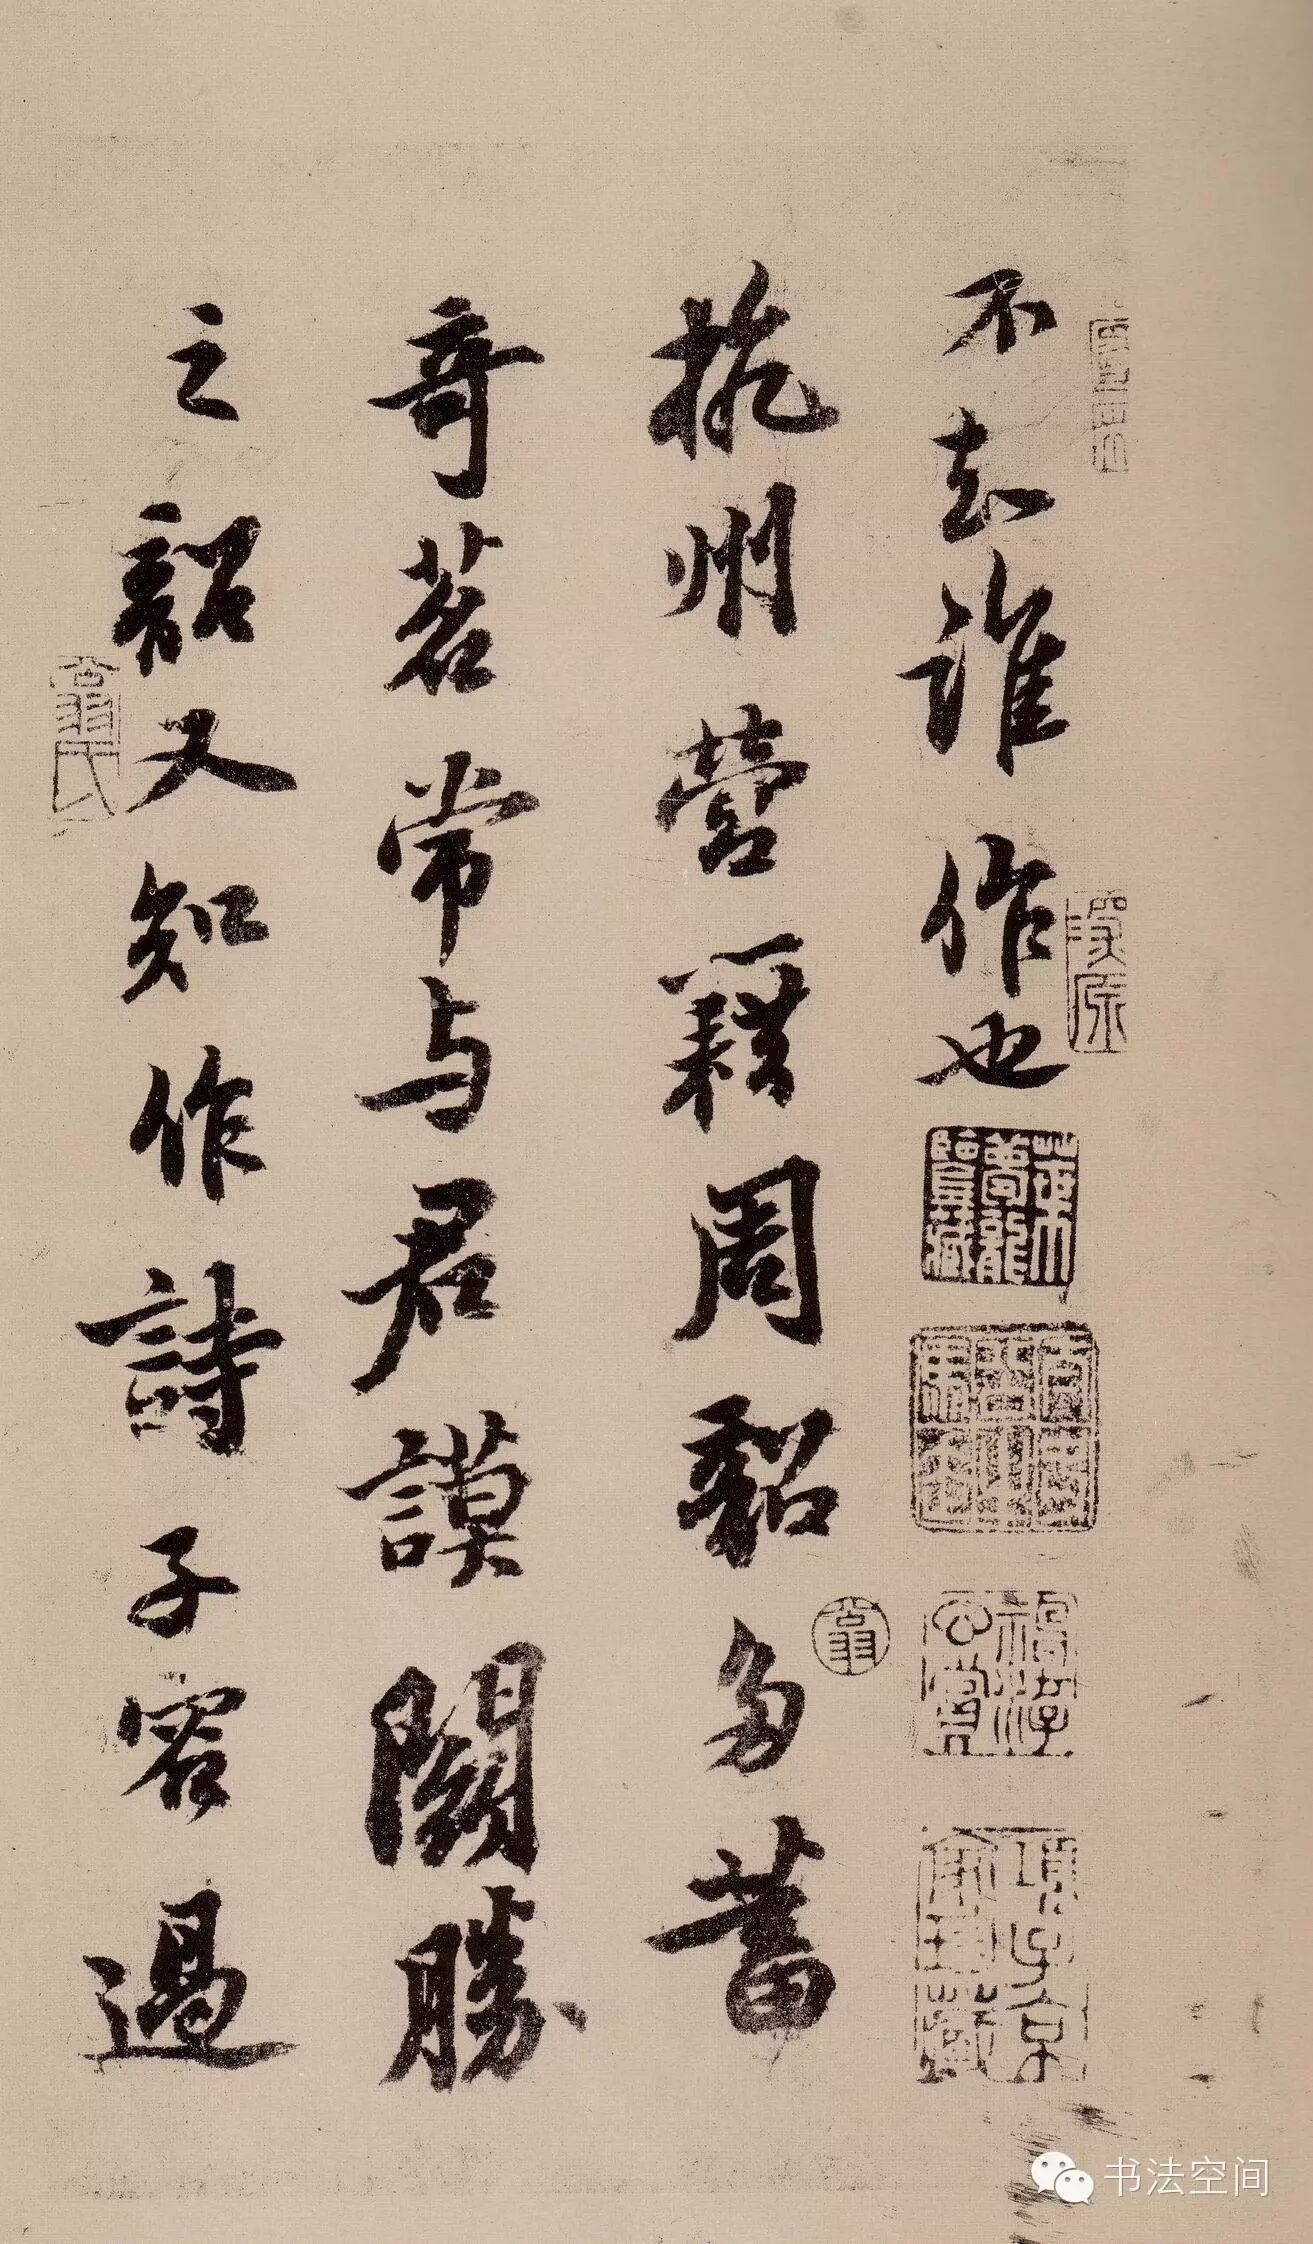 不知誰作也
杭州營籍周韶多蓄
奇茗常与君謨鬭勝
之韶又知作詩子容過
項子京家珍藏
书法空间